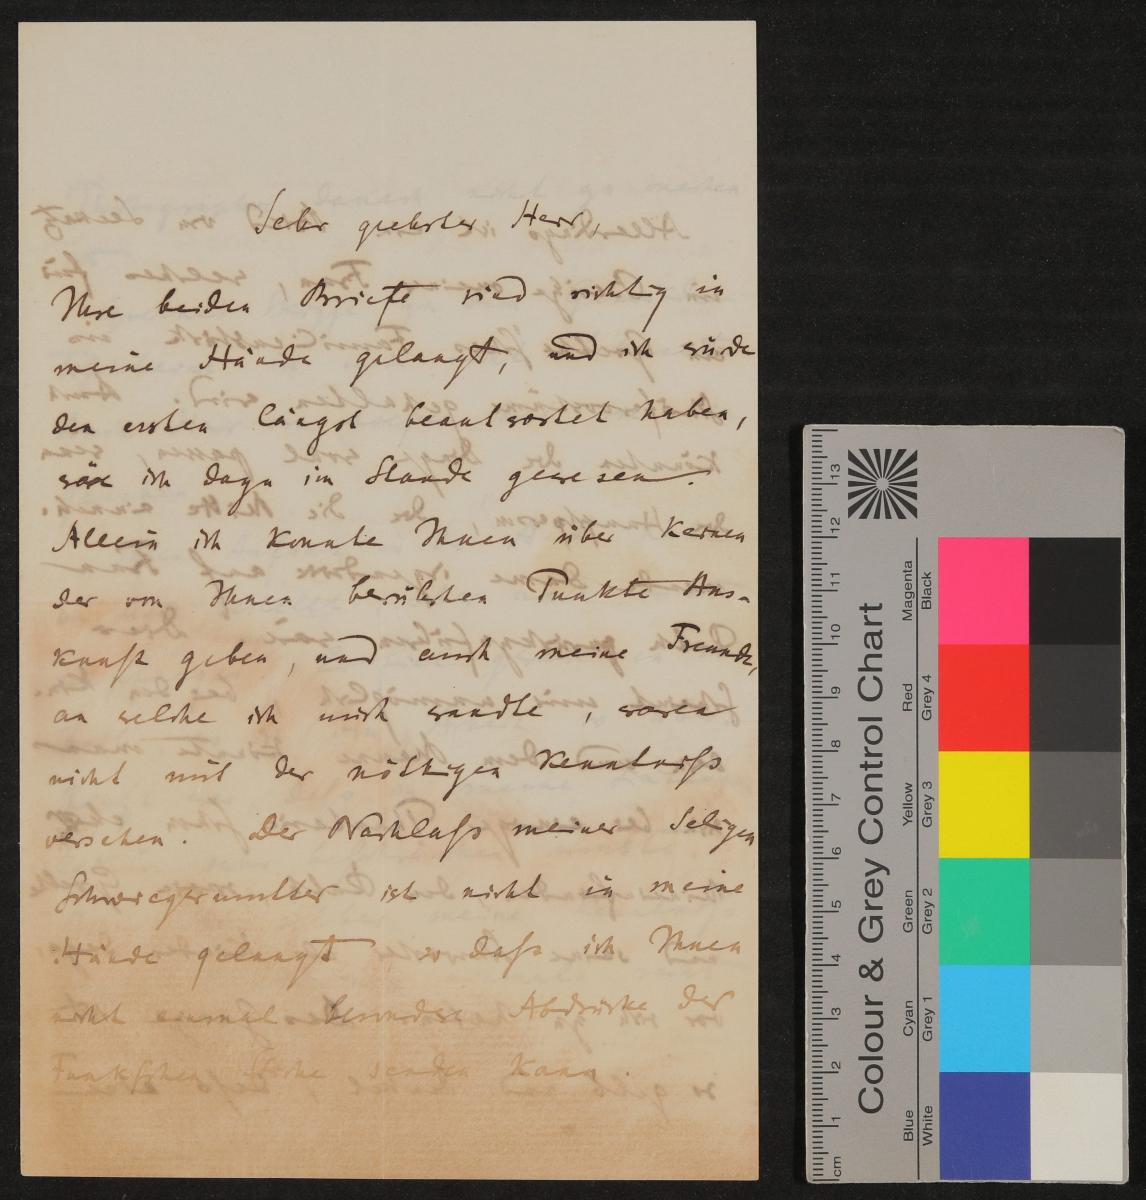 Sehr geehrter Herr,
Ihre beiden Briefe sind richtig in
meine Hände gelangt, und ich würde
den ersten längst beantwortet haben,
wäre ich dazu im Stande gewesen.
Allein ich konnte Ihnen über keinen
der von Ihnen berührten Punkte Aus-
kunft geben, und auch meine Freunde,
an welche ich mich wandte, waren
nicht mit der nöthigen Kenntniß
versehen. Der Nachlaß meiner seligen
Schwiegermutter ist nicht in meine
Hände gelangt so daß ich Ihnen
nicht einmal besondere Abdrücke der
Funkschen Stiche senden kann.
Colour & Grey Control Chart
Blue Cyan Green Yellow Red Magenta
White Grey 1 Grey 2 Grey 3 Grey 4 Black
cm 1 2 3 4 5 6 7 8 9 10 11 12 13